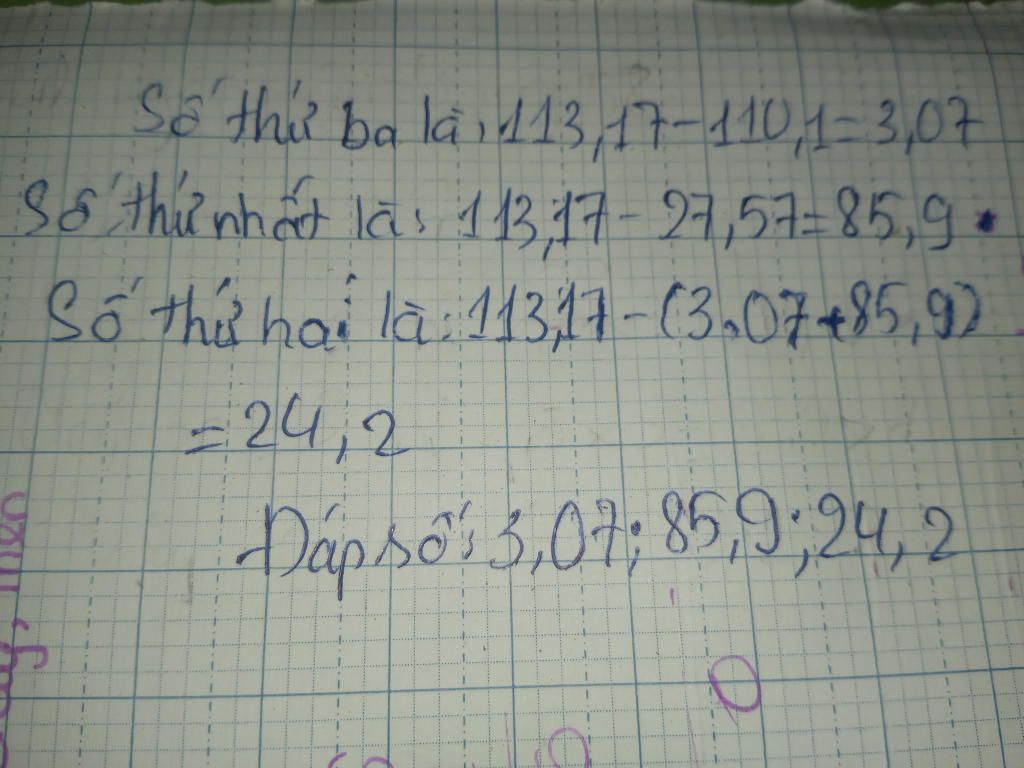 Số thứ ba là: 113,17-110,1=3,07
Số thứ nhất là: 113,17-27,57=85,9
Số thứ hai là: 113,17-(3.07+85,9)
=24,2
Đáp số: 3,07; 85,9; 24,2